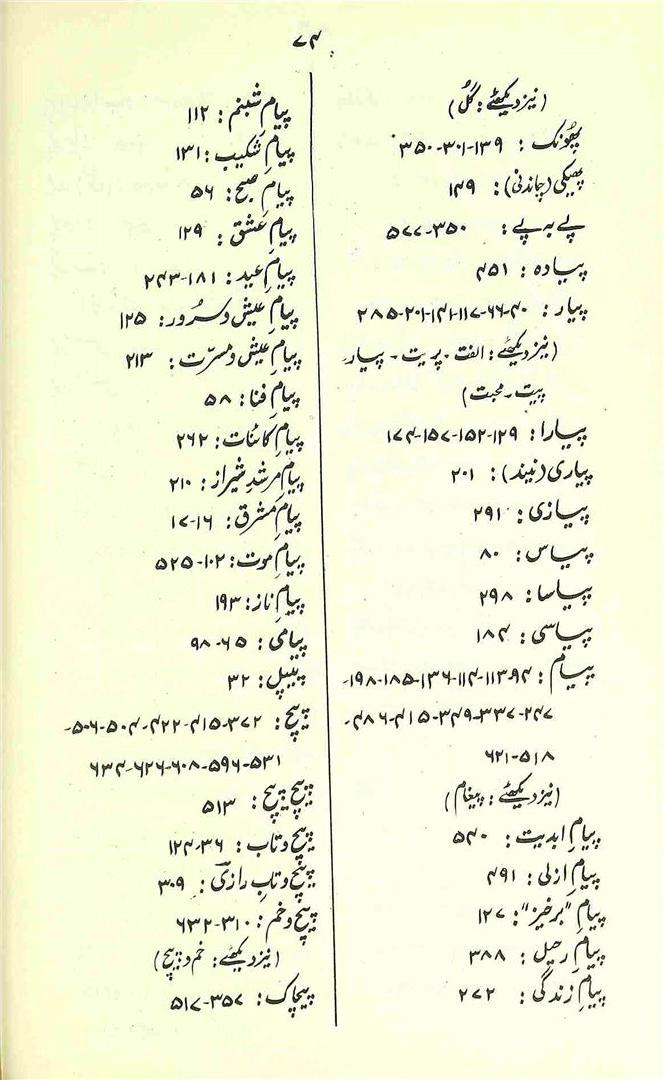 ۷۴
(نیز دیکھئے: گُل)
پھُونک: ۱۳۹-۳۰۱-۳۵۰
پھیکی (چاندنی): ۱۴۹
پے بہ پے: ۳۵۰-۵۷۷
پیادہ: ۴۵۱
پیار: ۴۰-۶۶-۱۱۷-۱۴۱-۲۰۱-۲۸۵
(نیز دیکھئے: الفت - پریت - پیار-
پیت - محبت)
پیارا: ۱۲۹-۱۵۲-۱۵۷-۱۷۴
پیاری (نیند): ۲۰۱
پیازی: ۲۹۱
پیاس: ۸۰
پیاسا: ۲۹۸
پیاسی: ۱۸۴
پیام: ۹۴
۱۱۳-۱۱۴-۱۳۶-۱۸۵-۱۹۸-
۲۴۷-۳۳۷-۳۴۹-۴۱۵-۴۸۶-
۵۱۸-۶۲۱
(نیز دیکھئے: پیغام)
پیامِ ابدیت: ۵۴۰
پیامِ ازلی: ۴۹۱
پیامِ "برخیز": ۱۲۷
پیامِ رحیل: ۳۸۸
پیامِ زندگی: ۲۷۲
پیامِ شبنم: ۱۱۲
پیامِ شکیب: ۱۳۱
پیامِ صبح: ۵۶
پیامِ عشق: ۱۲۹
پیامِ عید: ۱۸۱-۲۴۳
پیامِ عیش و سرُور: ۱۲۵
پیامِ عیش و مسرّت: ۲۱۳
پیامِ فنا: ۵۸
پیامِ کائنات: ۲۶۲
پیامِ مرشدِ شیراز: ۲۱۰
پیامِ مشرق: ۱۶-۱۷
پیامِ موت: ۱۰۲-۵۲۵
پیامِ ناز: ۱۹۳
پیامی: ۶۵-۹۸
پیپل: ۳۲
پیچ: ۳۷۲-۴۱۵-۴۲۲-۵۰۴-۵۰۶-
۵۳۱-۵۹۶-۶۰۸-۶۲۶-۶۳۴
پیچ پیچ: ۵۱۳
پیچ و تاب: ۳۶-۱۲۴
پیچ و تابِ رازیؔ: ۳۰۹
پیچ و خم: ۳۱۰-۶۳۲
(نیز دیکھئے: خم و پیچ)
پیچاک: ۳۵۷-۵۱۷